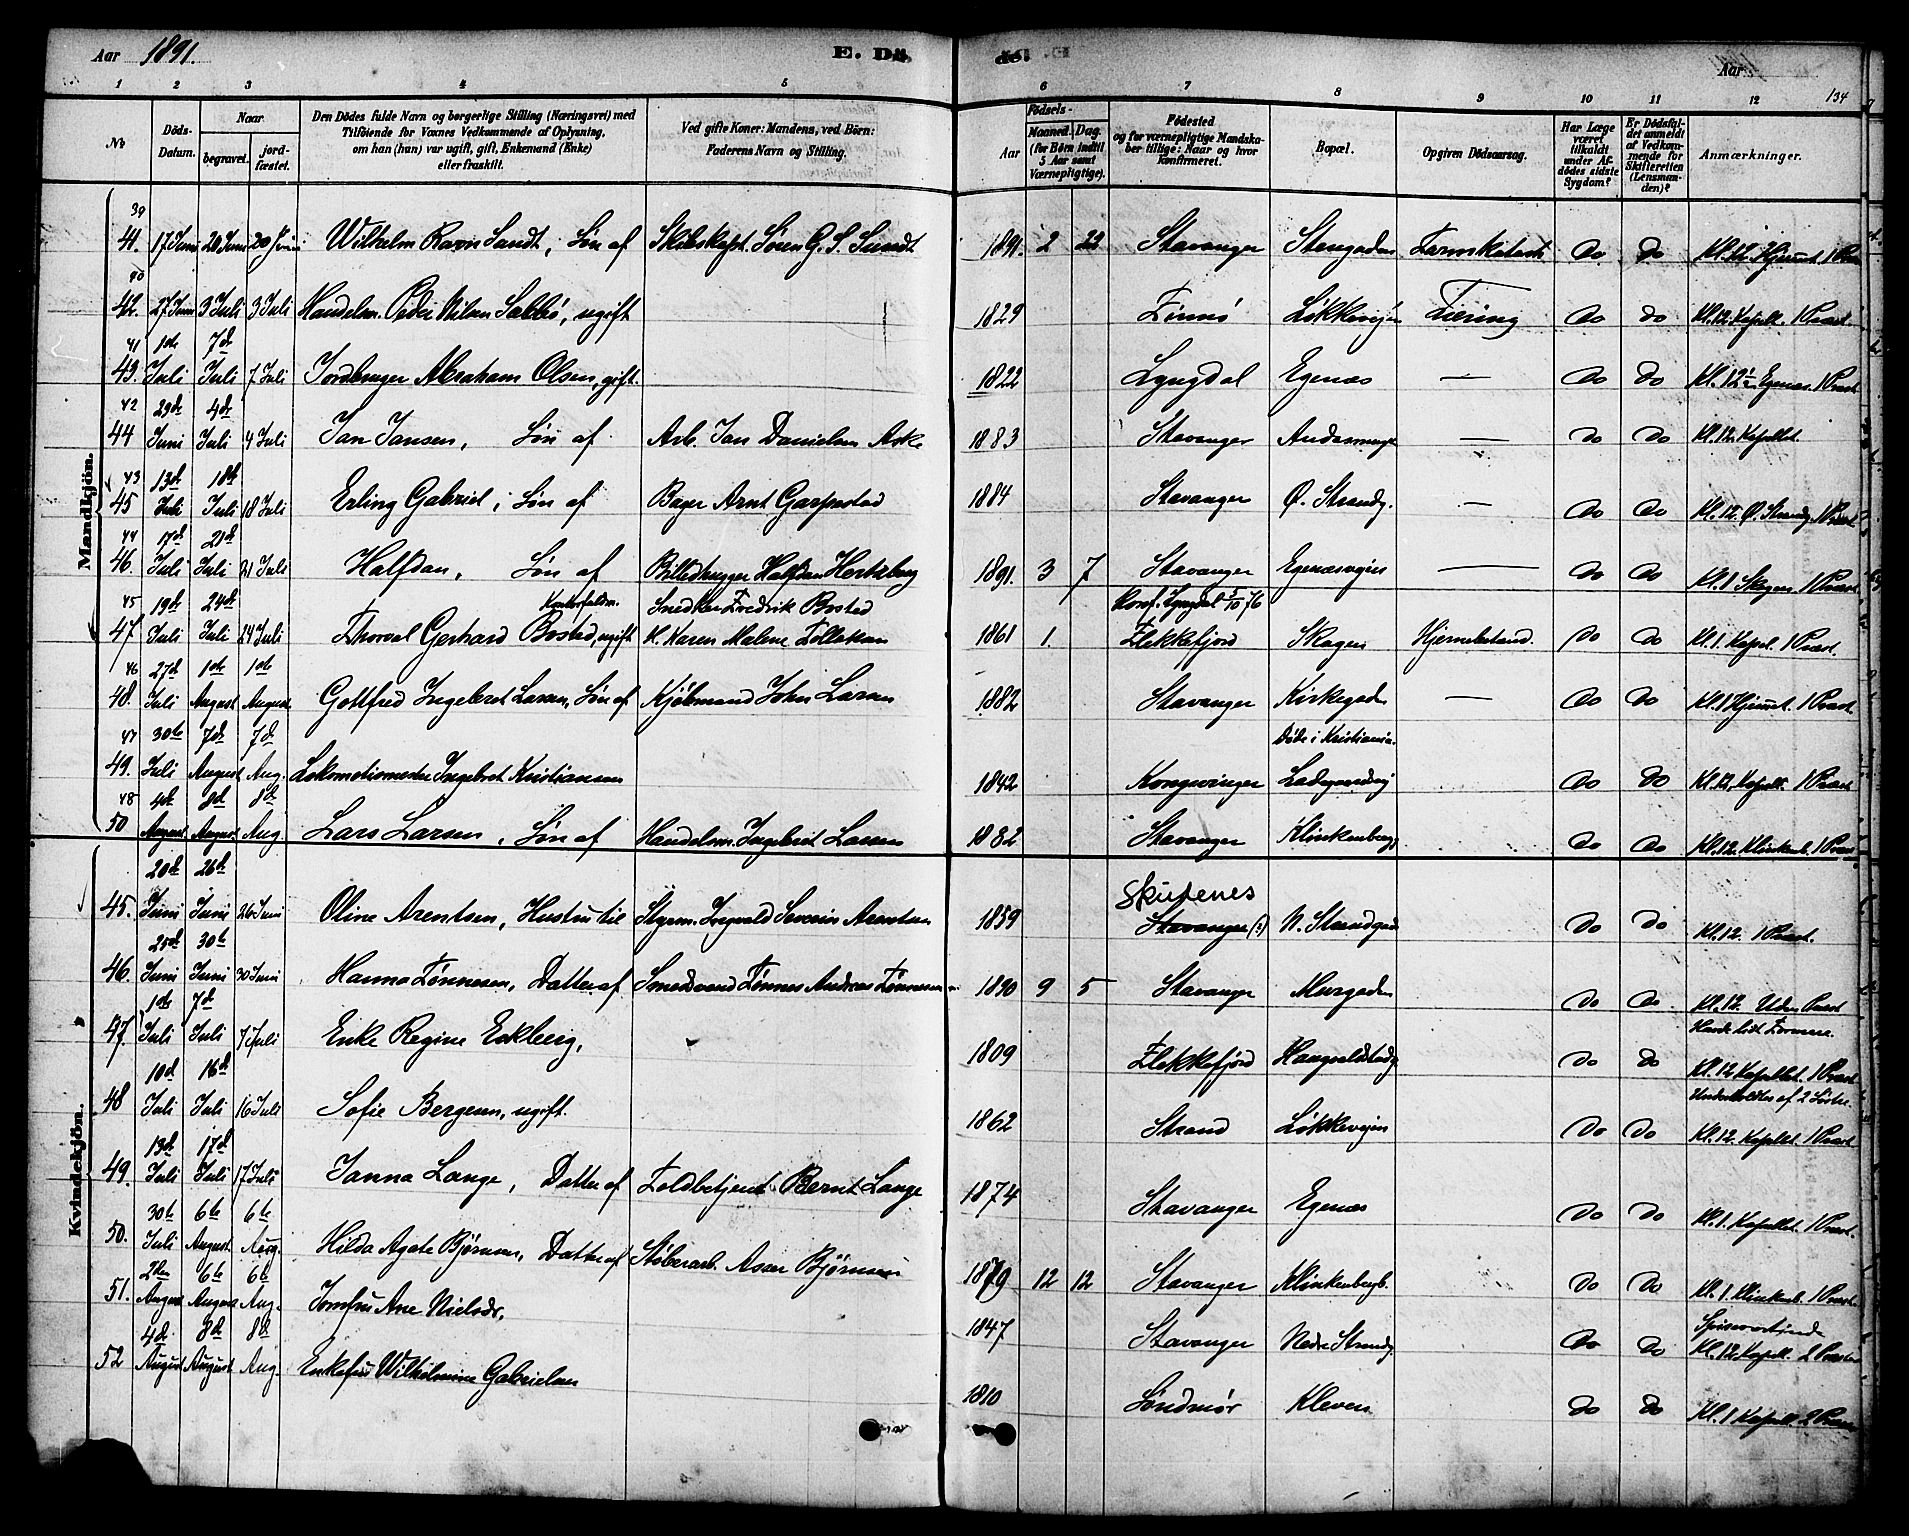 Aar 1891. E. Dö
de. Aar 134
1 2 3 4 5 6 7 8 9 10 11 12
No
Döds-Datum.
Naar
begravet.
jord-fæstet.
Den Dödes fulde Navn og borgerlige Stilling (Næringsvei) med
Tilföiende for Voxnes Vedkommende af Oplysning,
om han (hun) var ugift, gift, Enkemand (Enke)
eller fraskilt.
Ved gifte Koner: Mandens, ved Börn:
Faderens Navn og Stilling.
Födsels-
Aar
Maaned. Dag.
(for Börn indtil
5 Aar samt
Værnepligtige).
Födested
og for værnepligtige Mandska-
ber tillige: Naar og hvor
konfirmeret.
Bopæl.
Opgiven Dödsaarsag.
Har Læge
været
tilkaldt
under Af-
dödes sidste
Sygdom?
Er Dödsfal-
det anmeldt
af Vedkom-
mende for
Skifteretten
(Lensman-
den)?
Anmærkninger.
Mandkjön.
39
41. 17 Juni 20 Juni 20 Juni Wilhelm Ravn Sundt, Søn af Skibskapt. Søren G. S. Sundt 1891. 2 22 Stavanger Stengaden Tarmkatarrh do do Kl. 12. Hjemmet. 1 Præst
40
42. 27 Juni 3 Juli 3 Juli Handelsm. Peder Nilsen Sæbbø, ugift 1829 Løkkevejen Tæring do do Kl. 12. Kapell. 1 Præst.
41 1de 7de
43. Juli Juli 7 Juli Jordbruger Abraham Olsen, gift. 1822 Lyngdal Egenæs — do do Kl. 12½ Egenæs. 1 Præst
42 29de 4de
44 Juni Juli 4 Juli Jan Jansen, Søn af Arb. Jan Danielsen Aske 1883 Stavanger — do do Kl. 12. Kapellet.
43 13de 18de
45 Juli Juli 18 Juli Erling Gabriel, Søn af Bager Arnt Garpestad 1884 Stavanger Ø. Strandg. — do do Kl. 12. Ø. Strandg. 1 Præst
44 17de 21de
46. Juli Juli 21 Juli Halfdan, Søn af Billedhugger Halfdan Hertzberg 1891. 3 7 Stavanger Egenæsvejen — do do Kl. 1 Skagen 1 Præst
45 19de 24de Kontorfuldm. Snedker Fredrik Bosted Konf. Lyngdal 1/10 76
47. Juli Juli 24 Juli Thorval Gerhard Bosted, ugift H. Karen Malene Tollaksen 1861 1. Flekkefjord Skagen Hjernebetænd. do do Kl. 1. Kapel. 1 Præst.
46 27de 1ste 1ste
48. Juli August August Gottfred Ingebret Larsen, Søn af Kjøbmand John Larsen 1882 Stavanger Kirkegaden — do do Kl. 1 Hjemmet. 1 Præst
47 30te 7de 7de Døde i Kristiania.
49. Juli August Aug. Lokomotivmester Ingebret Kristiansen 1842 Kongsvinger Ladegaardsvej do do Kl. 12. Kapell. 1 Præst
48 4de 8de 8de
50 August August Aug. Lars Larsen, Søn af Handelsm. Ingebret Larsen 1882 Stavanger Klinkenberg do do Kl. 12. Klinkenb. 1 Præst
Kvindekjön.
20de 26de Skutenes
45. Juni Juni 26 Juni Oline Arentsen, Hustru til Styrm. Ingvald Severin Arentsen 1859 Stavanger (?) N. Strandgad do do Kl. 12. 1 Præst.
25de 30te
46. Juni Juni 30 Juni Hanna Tønnesen, Datter af Smedsvend Tønnes Andreas Tønnesen 1890 9 5 Stavanger Murgaden do do Kl. 12. Uden Præst
1de 7de Havde lidt Formue
47. Juli Juli 7 Juli Enke Regine Eckberg, 1809 Flekkefjord do do Kl. 12 Kapellet. 1 Præst
10de 16de Underholdtes af 2 Søstre.
48 Juli Juli 16 Juli Sofie Bergesen, ugift. 1862 Strand Løkkevejen do do Kl. 12. Kapellet 1 Præst
13de 17de
49. Juli Juli 17 Juli Janna Lange, Datter af Toldbetjent Bernt Lange 1874 Stavanger Egenæs do do Kl. 1. Kapellet. 1 Præst.
30te 6te 6te
50. Juli August. Aug. Hilda Agate Bjørnsen, Datter af Støberarb. Asser Bjørnsen 1879 12 12 Stavanger Klinkenbergb. do do Kl. 1. Klinkenb. 1 Præst.
2den 6te 6te
51. August August Aug. Jomfru Ane Nielsdr. 1847 Stavanger Nedre Strandg. do do Spiseværtinde Kl. 12 Kapell. 2 Præster
4de 8de 8de
52 August August Aug. Enkefru Wilhelmine Gabrielsen 1810 Søndmør Kleven do do Kl. 1 Kapell. 2 Præster